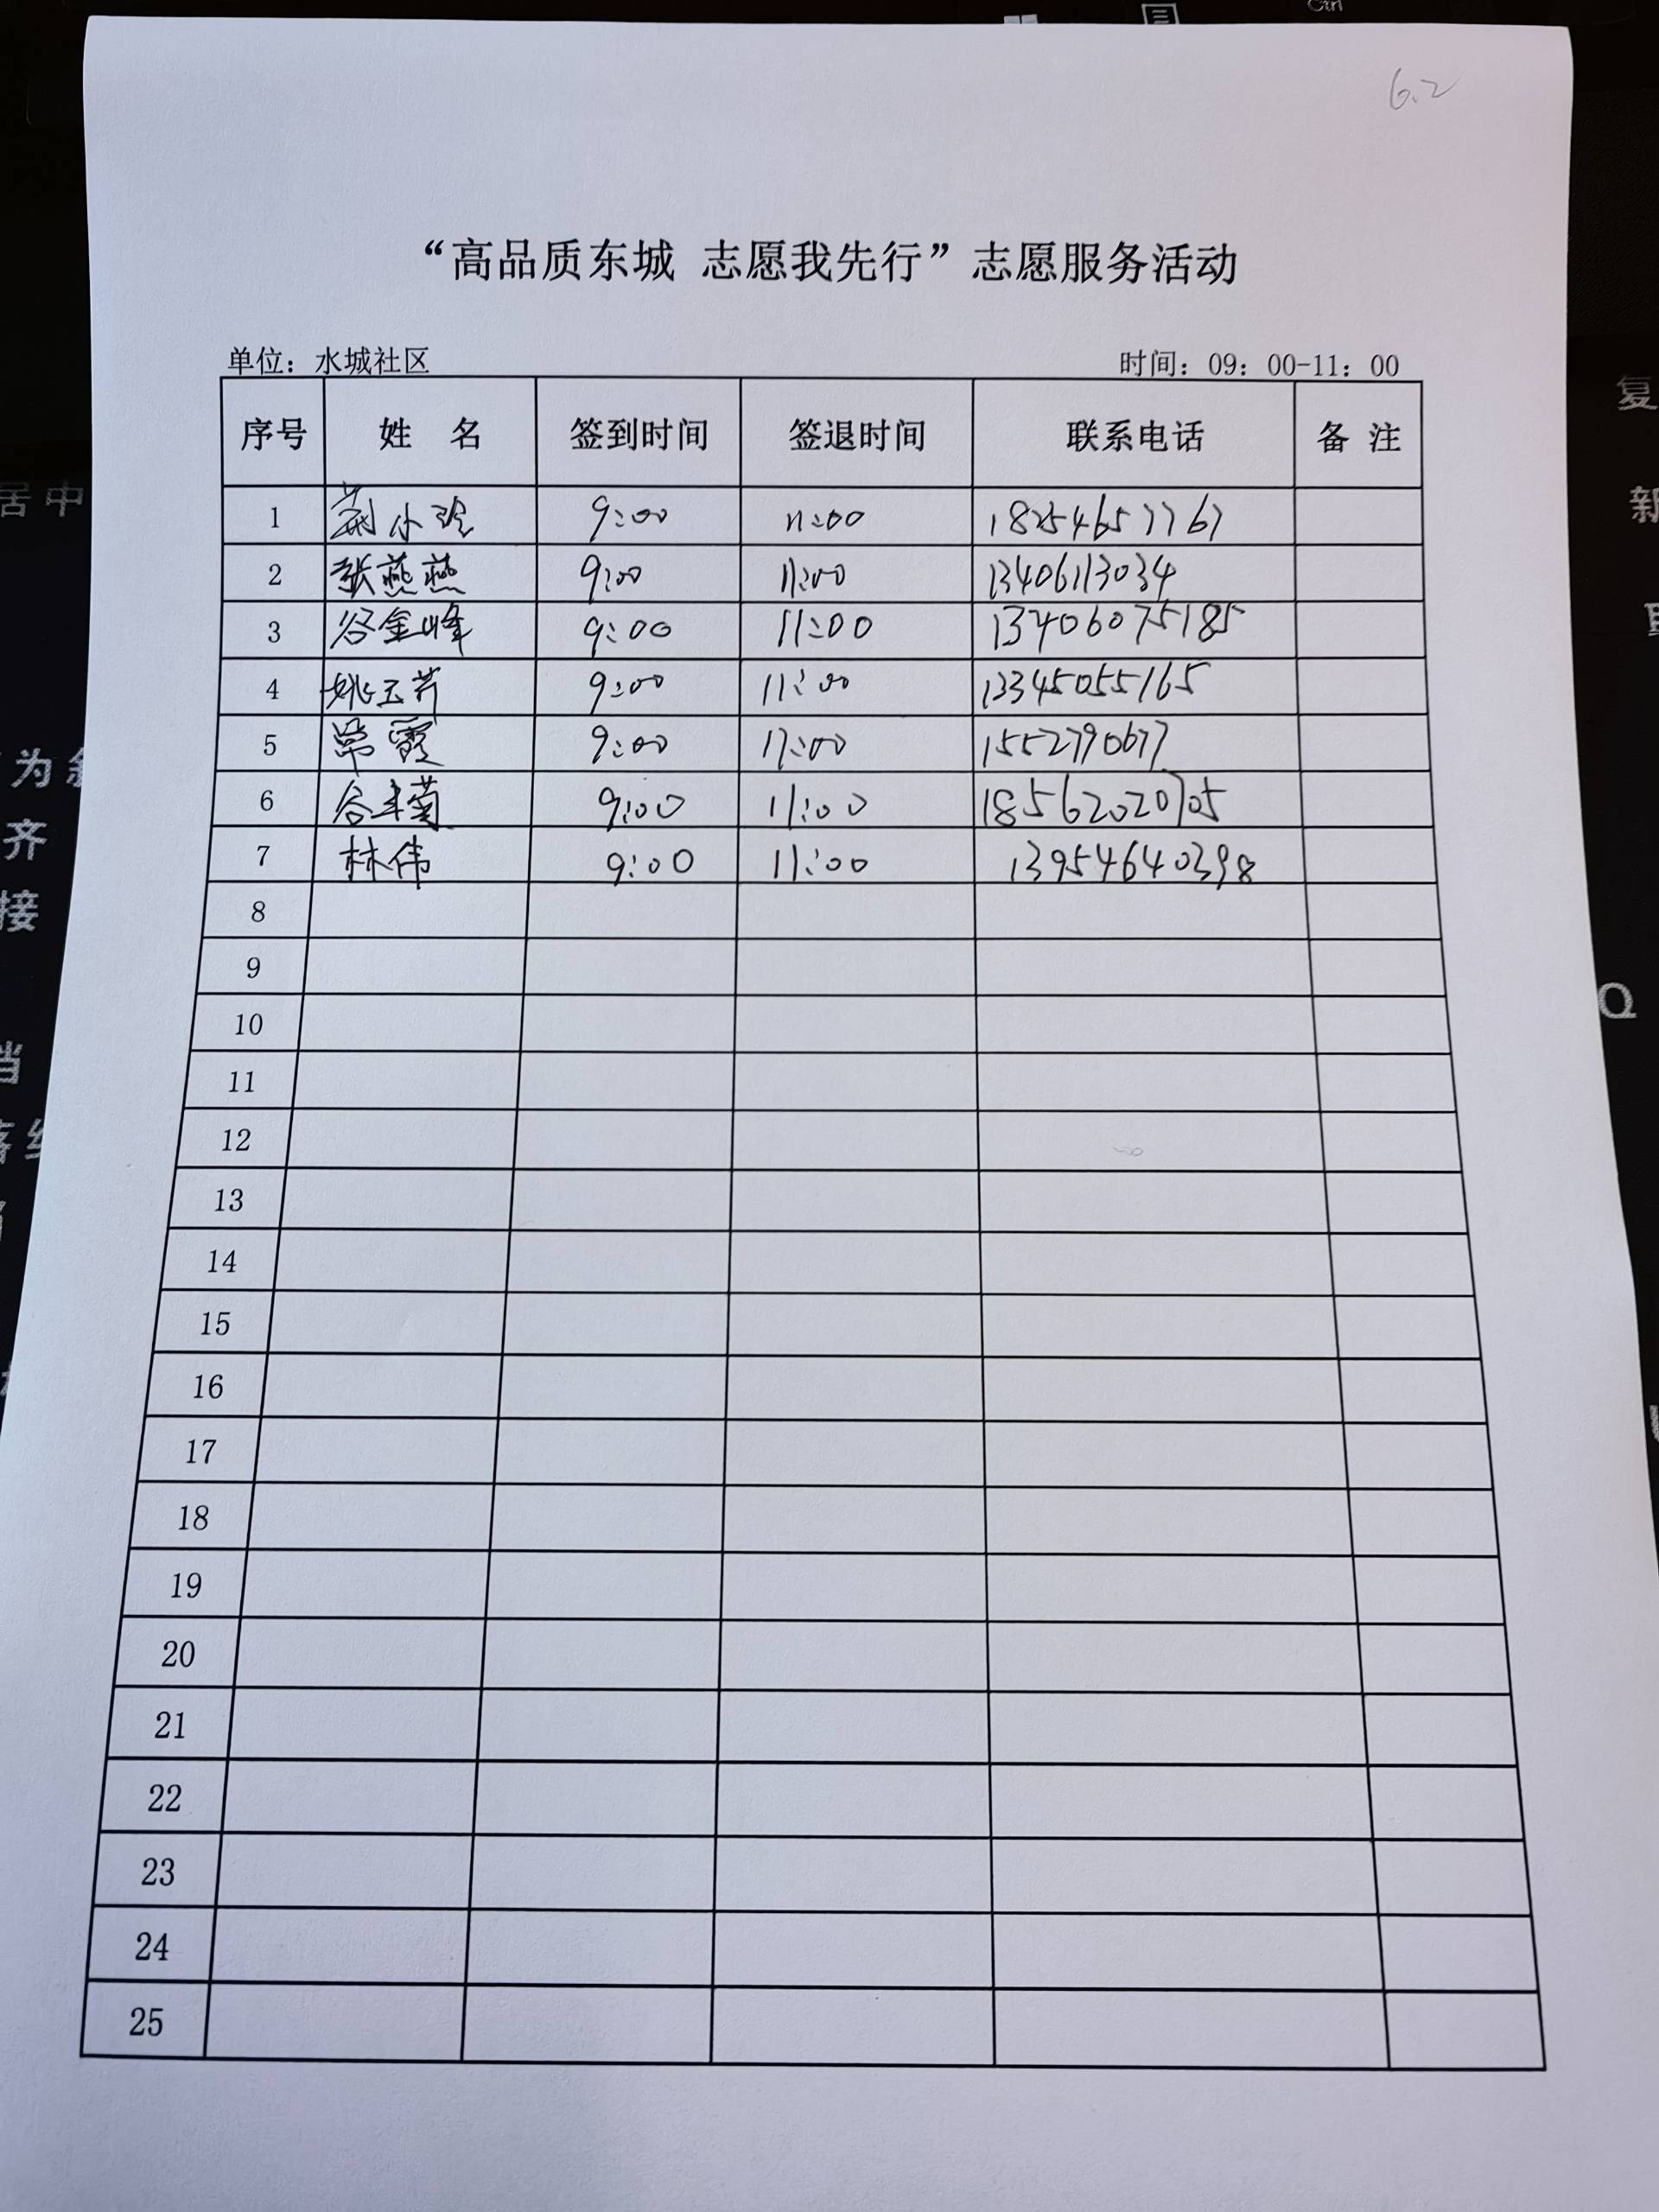 Ctrl
6.2
“高品质东城 志愿我先行”志愿服务活动
单位：水城社区 时间：09：00-11：00
序号 姓 名 签到时间 签退时间 联系电话 备 注
1 荆小玲 9:00 11:00 18254657767
2 张燕燕 9:00 11:00 13406113034
3 谷金峰 9:00 11:00 13406075185
4 姚玉芹 9:00 11:00 13345055165
5 常霞 9:00 11:00 15527790677
6 谷丰菊 9:00 11:00 18562020705
7 林伟 9:00 11:00 13954640398
8
9
10
11
12
13
14
15
16
17
18
19
20
21
22
23
24
25
居中
为
齐
接
复
新
Q